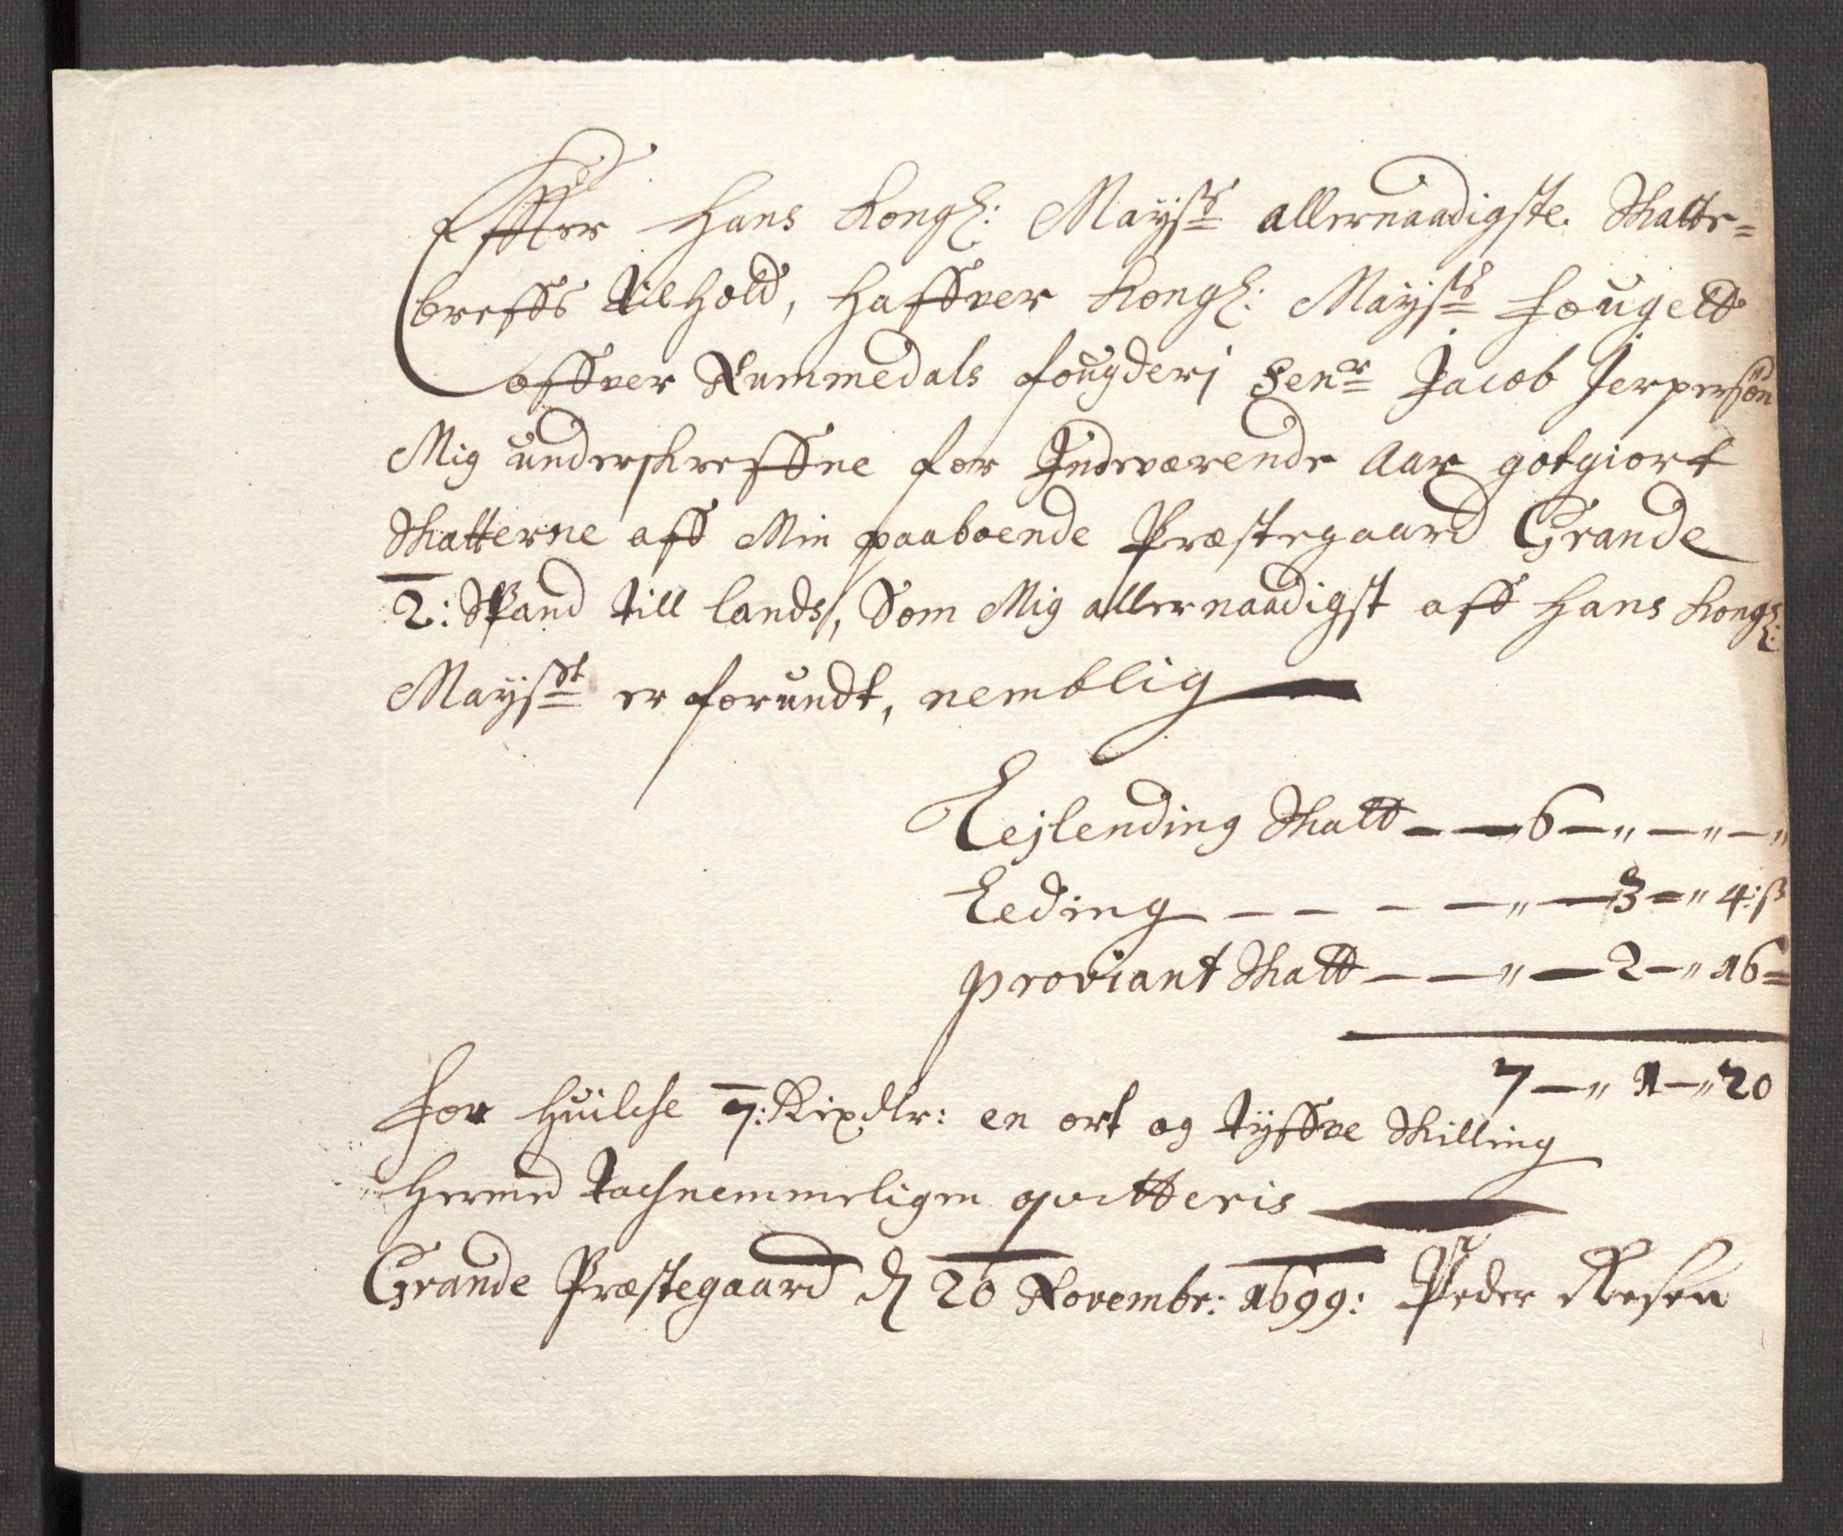 Effter Hans Kongl: Mayst: allernaadigste Skatte=
breffs tilhold, haffver Kongl: Mayst: fougett
offver Nummedals fougderj Senr: Jacob Jerpersøn
Mig underskreffne for Indeværende Aar gotgiort
Skatterne aff Min paaboende Præstegaard Grande
2: Spand till lands, Som Mig allernaadigst aff Hans Kongl:
Mayst: er forundt, nemblig
Lejlending Skatt — — 6 — „ — „ — „
Leding — — — — „ — 3 — „ 4: ß
proviant Skatt — — „ — 2 — „ 16 =
7 — „ 1 — „ 20
for huilche 7: Rixdlr: en ort og tyffve Skilling
hermed tachnemmeligen qvitteris
Grande Præstegaard d 20 Novembr: 1699: Peder Resen